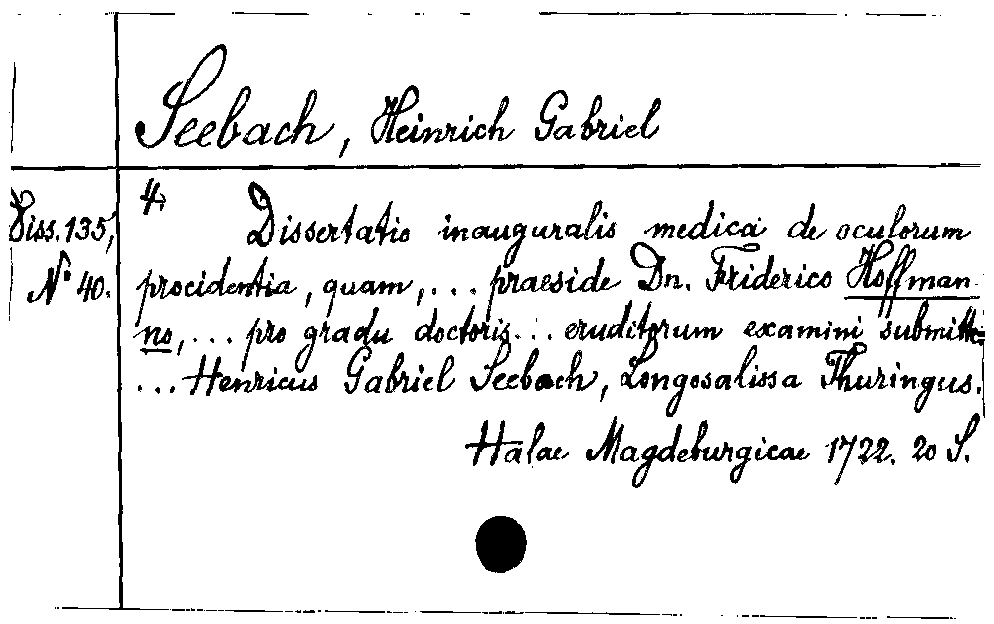 Seebach, Heinrich Gabriel
Diss. 135,
Nº 40.
4,
Dissertatio inauguralis medica de oculorum
procidentia, quam, ... praeside Dn. Friderico Hoffman-
no, ... pro gradu doctoris ... eruditorum examini submittit
... Henricus Gabriel Seebach, Longosalissa Thuringus.
Halae Magdeburgicae 1722. 20 S.